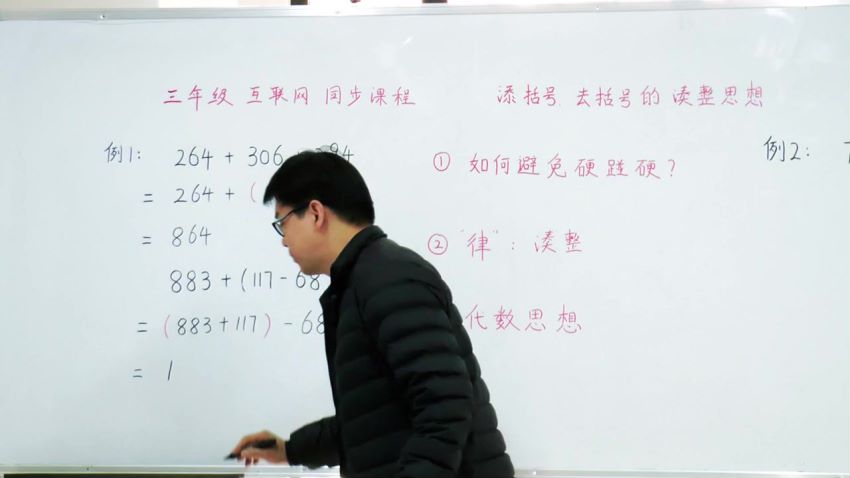 三年级 互联网 同步课程
添括号、去括号的凑整思想
例1: 264 + 306 + 294
= 264 + (
= 864
883 + (117 - 68
= (883 + 117) - 68
= 1
① 如何避免硬碰硬?
② "律": 凑整
代数思想
例2: 7